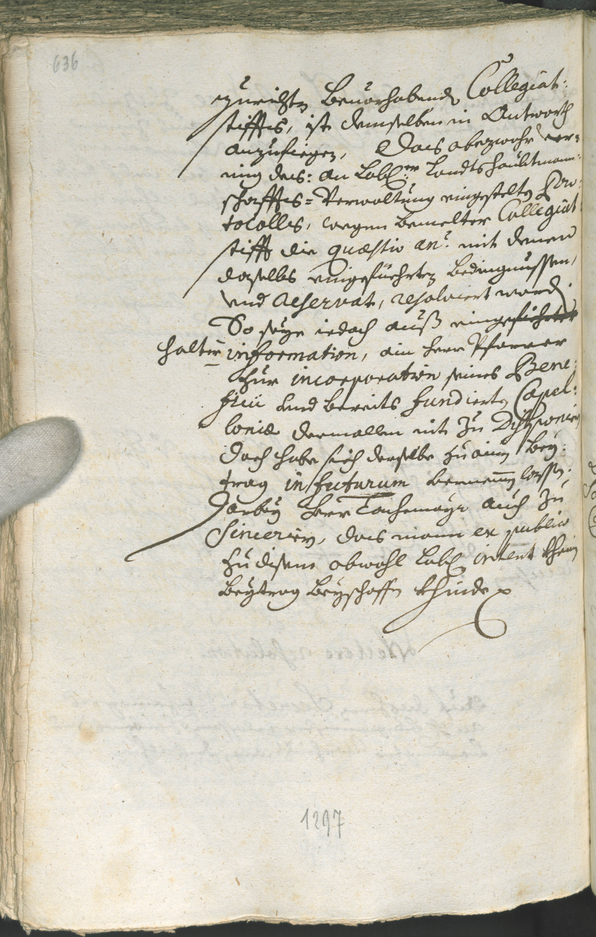 636
zurichten bevorhabende Collegiat-
stiffts, ist demselben in Antworth
anzufiegen, Dass obzwohr ver-
mög dess: an Löbl: Landtshaubtmann-
schaffts-Verwaltung eingestelten Pro-
tocolls, wegen bemelter Collegiat
stifft die quaestio an: mit denen
daselbs eingeführten Bedingnussen,
und reservat, resolviert worden
So seye iedoch auß eingeführter
halter information, ain herr Pfarrer
zur incorporation seines Bene-
ficii und bereits fundierten Capel-
loniae dermallen nit zu disponieren
doch habe sich derselbe zu ainem Bey-
trag in futurum vernemmen lassen.
Darbey herr Tachemayr auch zu
Sincerirn, dass mann ex publico
zu disem obwohl Löbl: intent khein
Beytrag beyschaffen khünde
1297